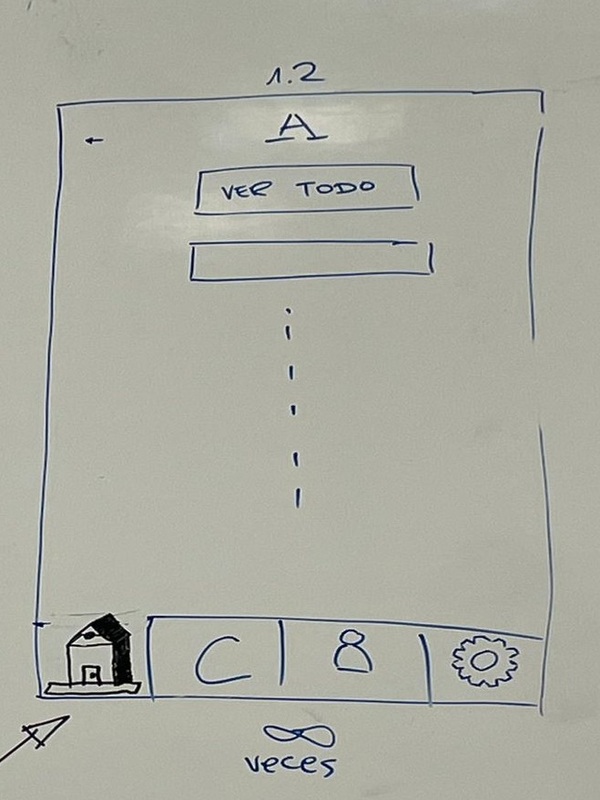 1.2
←
A
VER TODO
C
∞
veces